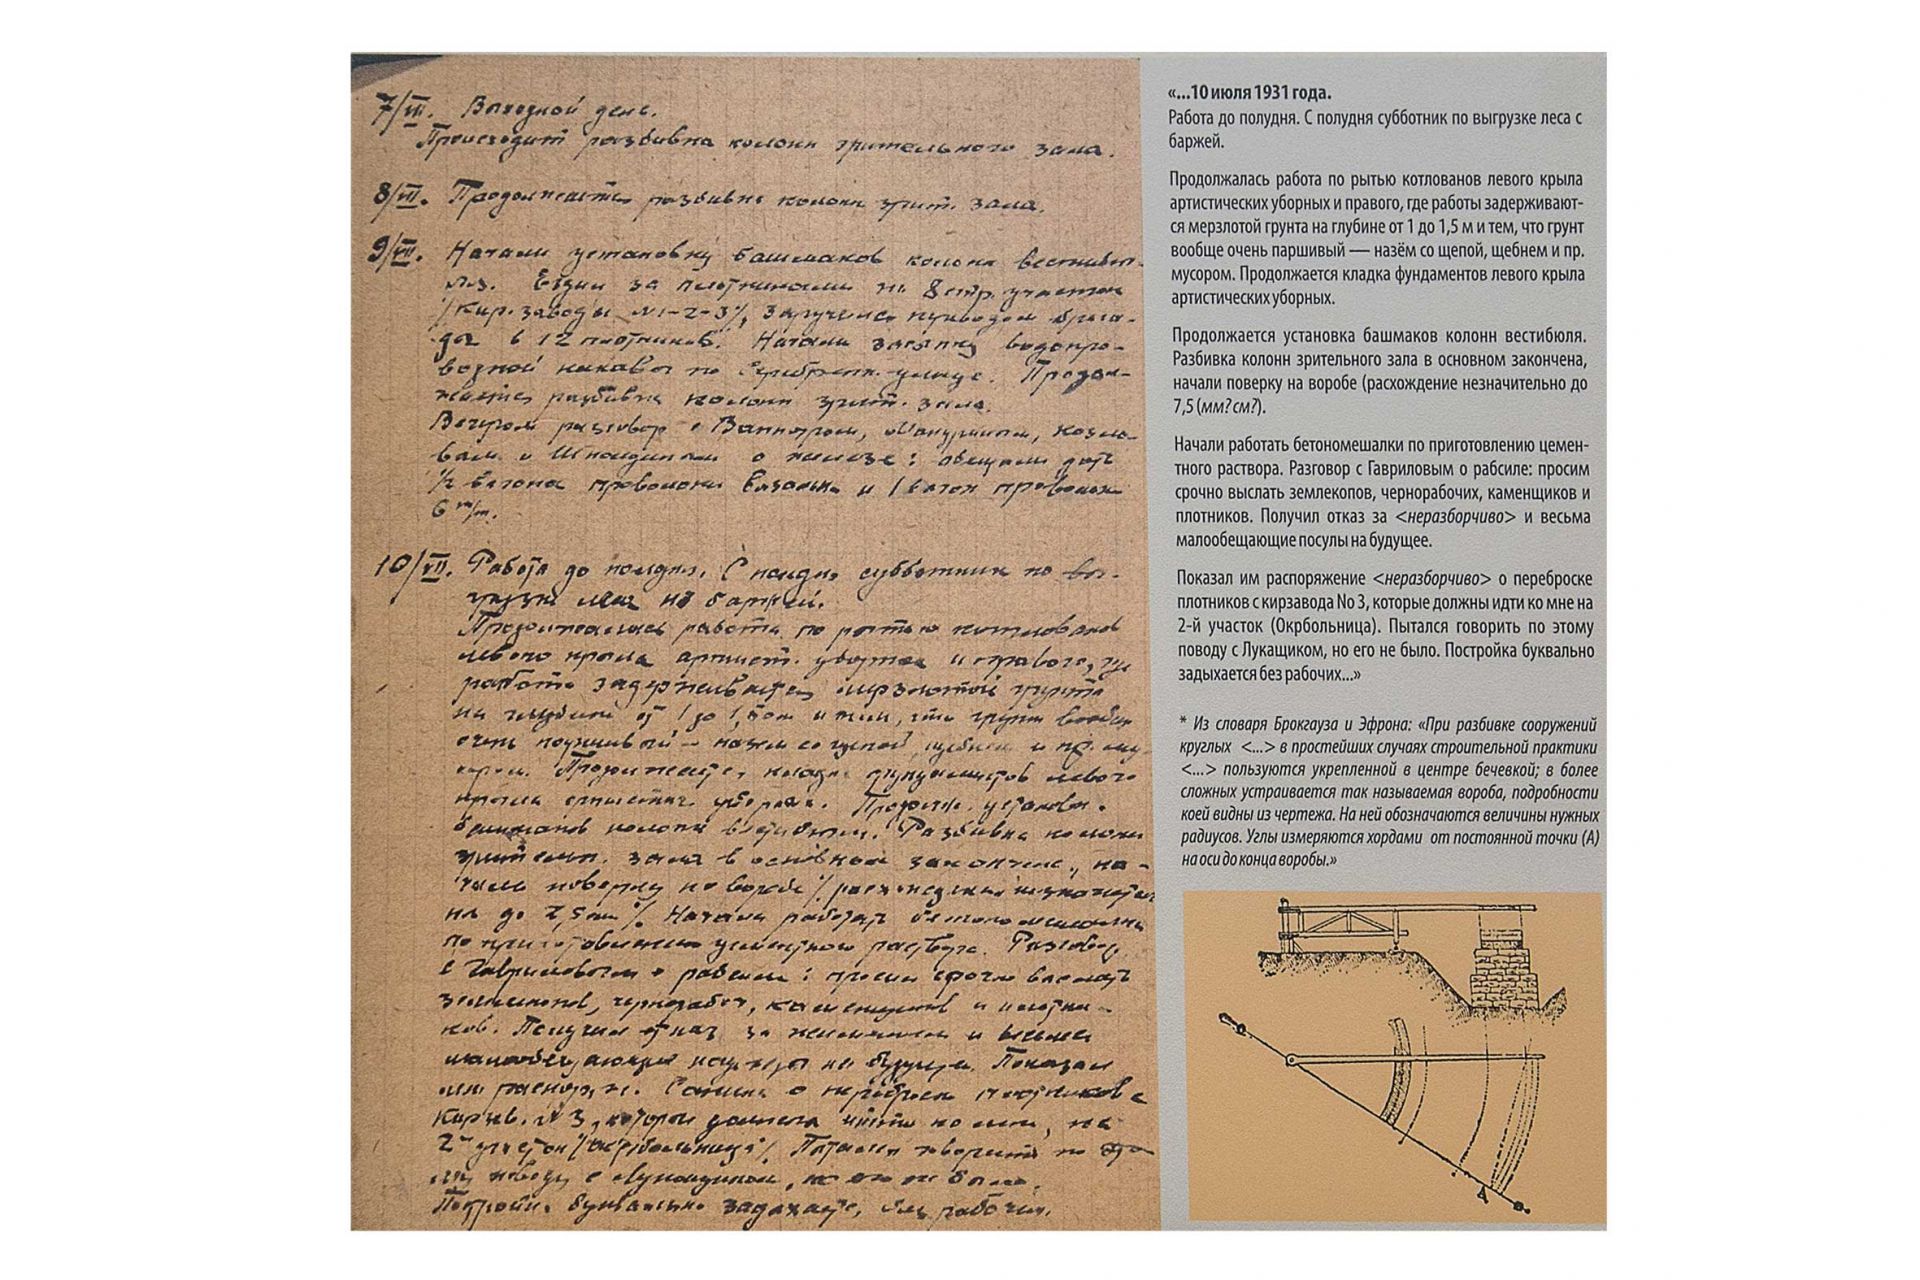 7/VII. Выходной день.
Происходит разбивка колонн зрительного зала.
8/VII. Продолжается разбивка колонн зрит. зала.
9/VII. Начали установку башмаков колонн вестибю-
ля. Ездил за плотниками на 8 стр. участок
/Кир. заводы №1-2-3/, заручился приводом брига-
ды в 12 плотников. Начали засыпку водопро-
водной канавы по улице. Продол-
жается разбивка колонн зрит. зала.
Вечером разговор с
о железе: обещали дать
1/2 вагона проволоки вязальн. и 1 вагон проволоки
6 m/m.
10/VII. Работа до полудня. С полудня субботник по вы-
грузке леса из баржей.
Продолжалась работа по рытью котлованов
левого крыла артист. уборных и правого, где
работы задерживаются мерзлотой грунта
на глубине от 1 до 1,5 м и тем, что грунт вообще
очень паршивый — назем со щепой, щебнем и пр. му-
сором. Продолжается кладка фундаментов левого
крыла артистич. уборных. Продолж. установка
башмаков колонн вестибюля. Разбивка колонн
зрительн. зала в основном закончена, на-
чали поверку на воробе /расхождения незначитель-
но до 7,5 /. Начали работать бетономешалки
по приготовлению цементного раствора. Разговор
с Гавриловым о рабсиле: просим срочно выслать
землекопов, чернорабоч, каменщиков и плотни-
ков. Получил отказ за и весьма
малообещающие посулы на будущее. Показал
им распоряж. о переброске плотников с
Кирзав. № 3, которые должны идти ко мне, на
2й участок /окрбольница/. Пытался говорить по это-
му поводу с Лукащиком, но его не было.
Постройка буквально задыхается без рабочих.
«...10 июля 1931 года.
Работа до полудня. С полудня субботник по выгрузке леса с
баржей.
Продолжалась работа по рытью котлованов левого крыла
артистических уборных и правого, где работы задерживают-
ся мерзлотой грунта на глубине от 1 до 1,5 м и тем, что грунт
вообще очень паршивый — назём со щепой, щебнем и пр.
мусором. Продолжается кладка фундаментов левого крыла
артистических уборных.
Продолжается установка башмаков колонн вестибюля.
Разбивка колонн зрительного зала в основном закончена,
начали поверку на воробе (расхождение незначительно до
7,5 (мм? см?).
Начали работать бетономешалки по приготовлению цемен-
тного раствора. Разговор с Гавриловым о рабсиле: просим
срочно выслать землекопов, чернорабочих, каменщиков и
плотников. Получил отказ за <неразборчиво> и весьма
малообещающие посулы на будущее.
Показал им распоряжение <неразборчиво> о переброске
плотников с кирзавода No 3, которые должны идти ко мне на
2-й участок (Окрбольница). Пытался говорить по этому
поводу с Лукащиком, но его не было. Постройка буквально
задыхается без рабочих...»
* Из словаря Брокгауза и Эфрона: «При разбивке сооружений
круглых <...> в простейших случаях строительной практики
<...> пользуются укрепленной в центре бечевкой; в более
сложных устраивается так называемая вороба, подробности
коей видны из чертежа. На ней обозначаются величины нужных
радиусов. Углы измеряются хордами от постоянной точки (А)
на оси до конца воробы.»
А